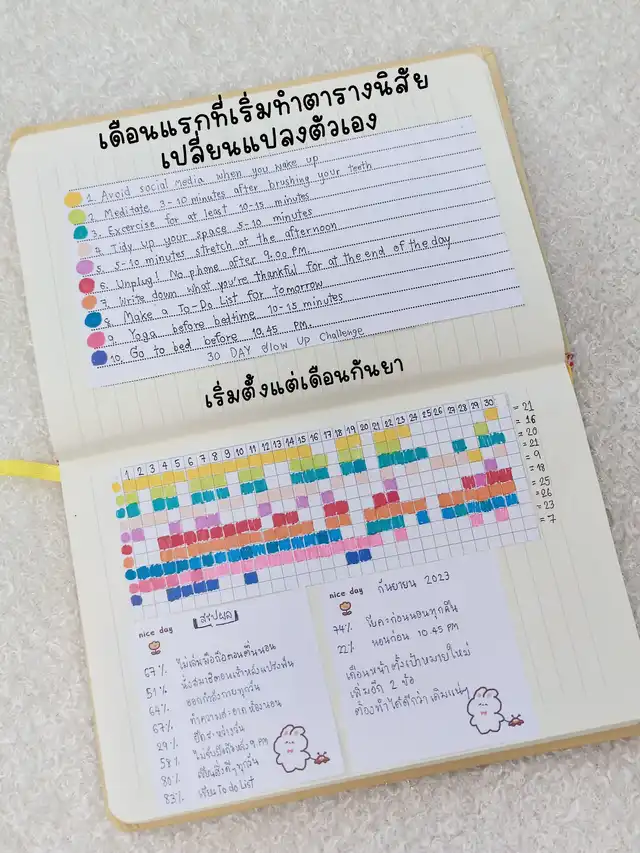 เดือนแรกที่เริ่มทำตารางนิสัย
เปลี่ยนแปลงตัวเอง
1. Avoid social media when you wake up
2. Meditate 3-10 minutes after brushing your teeth
3. Excercise for at least 10-15 minutes
4. Tidy up your space 5-10 minutes
5. 5-10 minutes stretch at the afternoon
6. Unplug! No phone after 9.00 PM.
7. Write down what you're thankful for at the end of the day
8. Make a To-Do List for tomorrow
9. Yoga before bedtime 10-15 minutes
10. Go to bed before 10.45 PM.
30 DAY Glow Up Challenge
เริ่มตั้งแต่เดือนกันยา
1 2 3 4 5 6 7 8 9 10 11 12 13 14 15 16 17 18 19 20 21 22 23 24 25 26 27 28 29 30
= 21
= 16
= 20
= 21
= 9
= 18
= 25
= 26
= 23
= 7
nice day
สรุปผล
67% ไม่เล่นมือถือตอนตื่นนอน
51% นั่งสมาธิตอนเช้าหลังแปรงฟัน
64% ออกกำลังกายทุกวัน
67% ทำความสะอาดห้องนอน
29% ยืดระหว่างวัน
58% ไม่จับมือถือหลัง 9 PM
80% เขียนสิ่งดีๆทุกวัน
83% เขียน To do List
nice day
กันยายน 2023
74% โยคะก่อนนอนทุกคืน
22% นอนก่อน 10.45 PM
เดือนหน้าตั้งเป้าหมายใหม่
เพิ่มอีก 2 ข้อ
ต้องทำได้ดีกว่าเดิมแน่ๆ